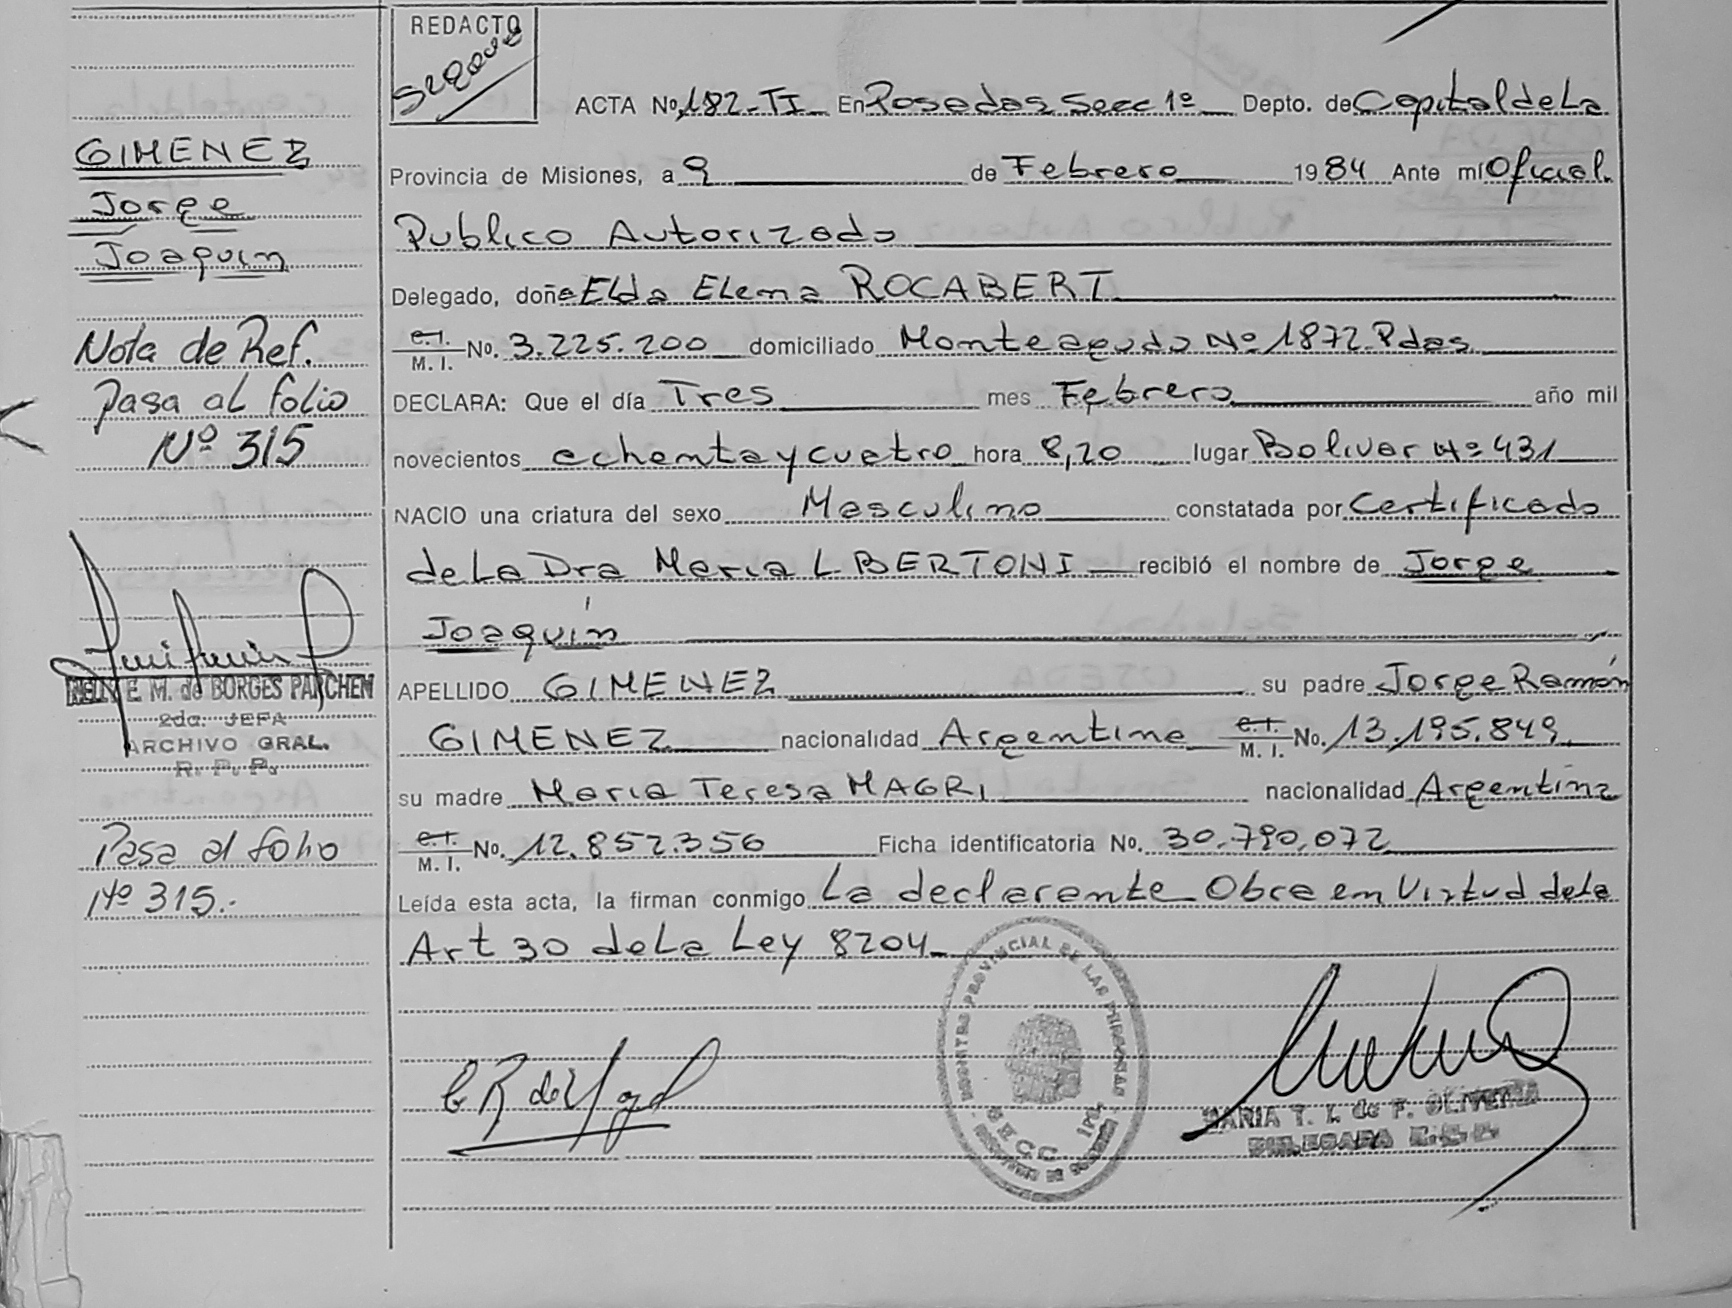 REDACTO
ACTA No. 182-TI En Posadas Secc 1º Depto. de Capital de La
GIMENEZ
Jorge
Joaquin
Provincia de Misiones, a 9 de Febrero 1984 Ante mi Oficial
Publico Autorizado
Delegado, doña Elda Elena ROCABERT
Nota de Ref.
Pasa al folio
Nº 315
C.I. M.I. No. 3.225.200 domiciliado Monteagudo Nº 1872 Pdas
DECLARA: Que el día Tres mes Febrero año mil
novecientos ochenta y cuatro hora 8,20 lugar Bolivar Nº 431
NACIO una criatura del sexo Masculino constatada por Certificado
de La Dra Maria L BERTONI recibió el nombre de Jorge
Joaquín
APELLIDO GIMENEZ su padre Jorge Ramón
GIMENEZ nacionalidad Argentina C.I. M.I. No. 13.195.849
su madre Maria Teresa MAGRI nacionalidad Argentina
C.I. M.I. No. 12.852.356 Ficha identificatoria No. 30.790.072
NELLY E. M. de BORGES PARCHEN
2da. JEFA
ARCHIVO GRAL.
R. P. P.
Pasa al folio
Nº 315.-
Leída esta acta, la firman conmigo La declarante Obra en Virtud de La
Art 30 de La Ley 8204
REGISTRO PROVINCIAL DE LAS PERSONAS
SECC. 1ra.
MARIA T. I. de F. OLIVEIRA
DELEGADA